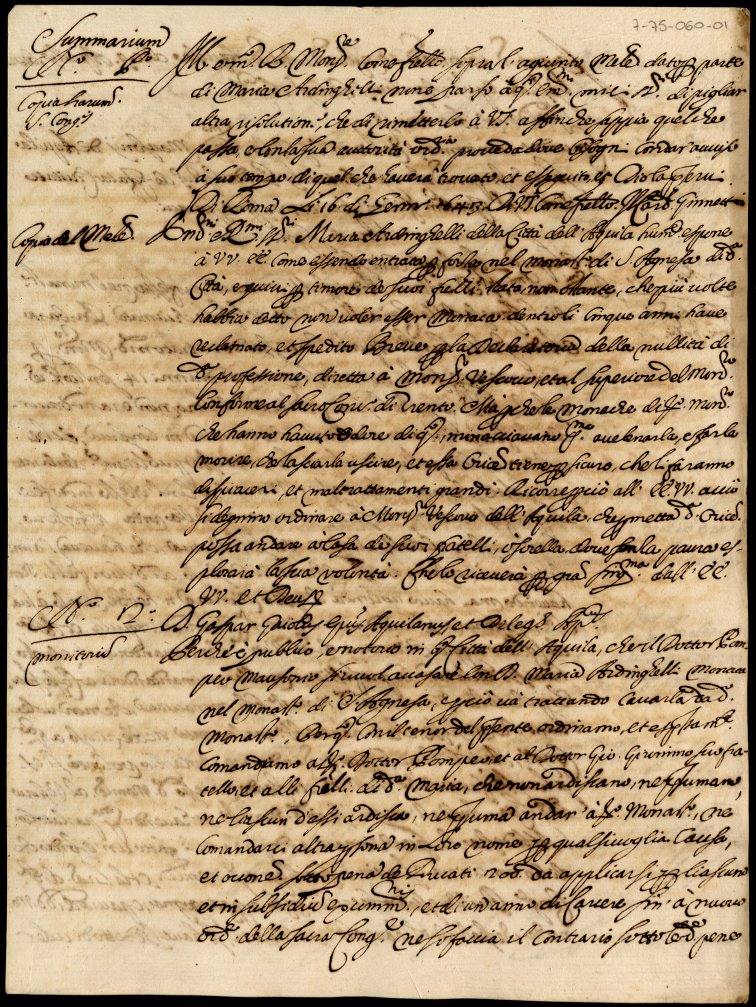 7-75-060-01
Summarium
N.º p.º
Copia
S. Cong.
Ill. e m. R. Mons. Come fratello sopra l'aggiunto Mem.le dato p parte
di Maria Ardinghelli non è parso à q.i Em.mi miei S.ri di pigliar
altra risolution, che di rimetterlo à VS. affinche sappia quel che
passa, e con la sua autorità ord.ria proceda dove bisogni con dar avviso
a suo tempo di quel che haverà trovato, et esseguito, et Dio la preservi
Di Roma li 16 di Genn. 1643. D VS. Come fratello. Il Card. Ginnetti
Copia del Mem.le
Em.mi e R.mi S.ri Maria Ardinghelli della Città dell'Aquila hum. espone
à VV. EE. come essendo entrata p forza nel monast. di S. Agnesa di d.
Città, e quivi p timore de suoi fratelli stata, non ostante, che più volte
habbia detto non voler esser Monaca dentro li cinque anni have
reclamato, et spedito Breve p la Declaratoria della nullità di
d. professione, diretta à Mons. Vescovo, et al superiore del Mon.
conforme al sacro Conc. di Trento. Mà p che le monache di d. mon.
che hanno havuto odore di q., minacciavano p.ma avelenarla, e farla
morire, che lasciarla uscire, et essa Orat. tiene p sicuro, che li faranno
dispiaceri, et maltrattamenti grandi. Ricorre p ciò all'EE.VV. acciò
si degnino ordinare à Mons. Vescovo dell'Aquila, che permetta d. Orat.
possa andare à casa de suoi fratelli, ò sorella, dove senza paura es-
plorarà la sua volontà. Che lo riceverà p gra. sing.ma dall'EE.
VV. et Deus
N.º 2.º
D. Gaspar Epùs Aquilanus et Deleg. Ap.
monitorio
Perche è publico, e notorio in q. Città dell'Aquila, che il Dottor Pom-
peo Mausonio si vuol accasare con D. Maria Ardinghelli monaca
nel Monast. di S. Agnesa, e p ciò và trattando cavarla da d.
Monast., Per q. con il tenor del pnte ordinamo, et espressam.
comandiamo à d. Dottor Pompeo, et al Dottor Gio. Gironimo suo fra-
tello, et alli frelli di d. Maria, che non ardiscano, ne psumano,
ne ciascun d'essi ardisca, ne psuma andar' à d. Monast., ne
comandarci altra psona in loro nome p qualsivoglia causa,
et occone. sotto pena de Ducati 200. da applicarsi p ciascuno
et in subsidiu excomm.nis, et di un anno di carcere sin' à nuovo
ord. della sacra Cong. ne si faccia il contrario sotto le d. pene